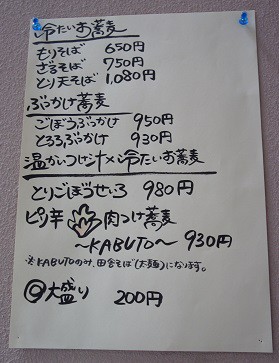 冷たいお蕎麦
もりそば 650円
ざるそば 750円
とり天そば 1,080円
ぶっかけ蕎麦
ごぼうぶっかけ 950円
とろろぶっかけ 930円
温かいつけ汁×冷たいお蕎麦
とりごぼうせいろ 980円
ピリ辛 肉つけ蕎麦
〜KABUTO〜 930円
※KABUTOのみ、田舎そば(太麺)になります。
◎大盛り 200円